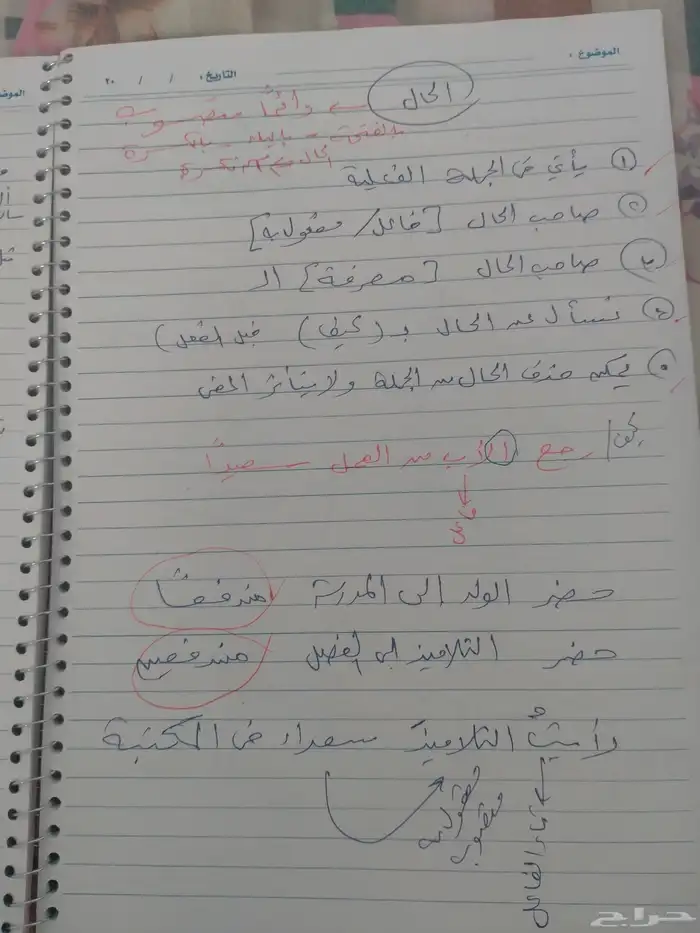 الموضوع :
التاريخ : / / ٢٠
الموض
الحال ← دائمًا منصوب
بالفتحة - بالياء - بالكسرة
الحال ← نكرة
١ يأتي في الجملة الفعلية
٢ صاحب الحال [فاعل / مفعول به]
٣ صاحب الحال [معرفة] ال
٤ نسأل عن الحال بـ (كيف) قبل الفعل)
٥ يمكن حذف الحال من الجملة ولا يتأثر المعنى
نحو / رجع الأب من العمل سعيدًا
حضر الولد إلى المدرسة مندفعًا
حضر التلاميذ إلى الفصل مندفعين
رأيتُ التلاميذ سعداء في المكتبة
مفعول به
منصوب
تاء الفاعل
حراج